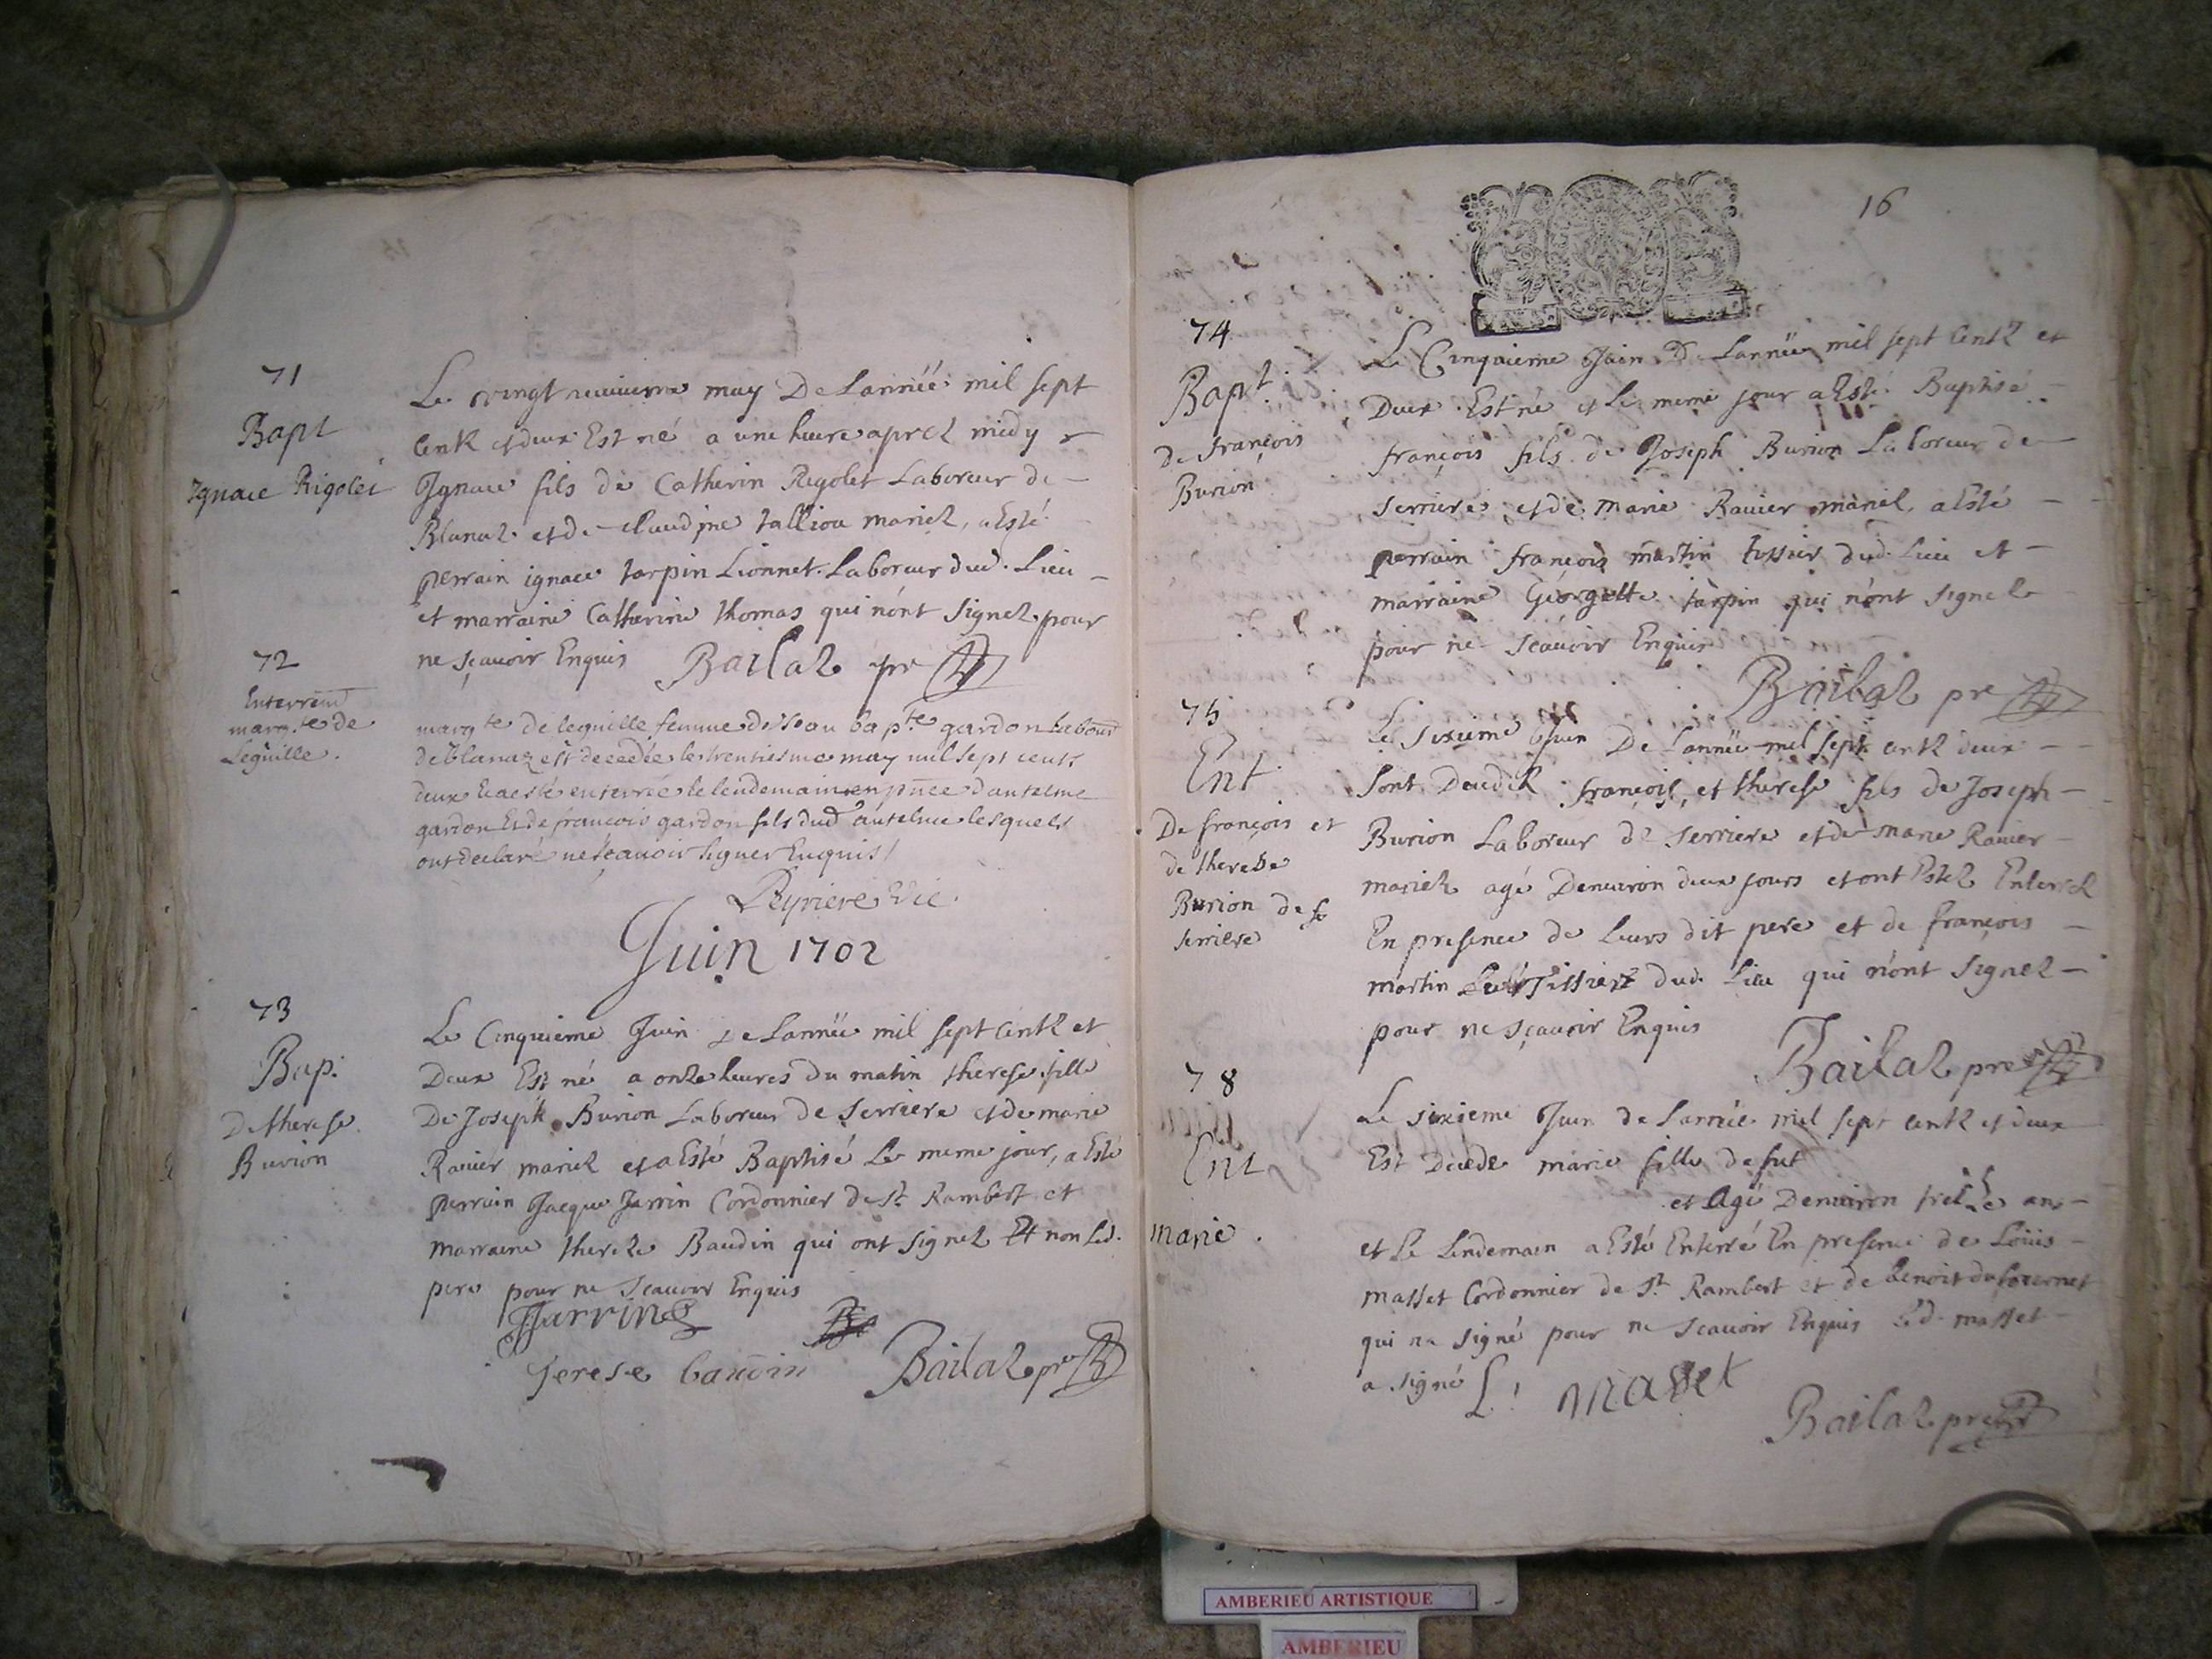 71
Bapt
Ignace Rigolet
Le vingt neuvieme may De Lannéé mil sept
centz et deux Est né a une heure aprez midy
Ignace fils de Catherin Rigolet Laboreur de
Blanaz et de claudine talliou mariez, a Esté
perrain ignace tarpin Lionnet Laboreur dud. Lieu
et marraine Catherine thomas qui n'ont signez pour
ne sçavoir Enquis Bailaz pre
72
Enterremt
margte de
Leguille.
margte de leguille femme de Jean bapte gardon Labour
de blanaz est decedée le trentiesme may mil sept cents
deux Et a esté enterrée le lendemain en pnce d'antelme
gardon Et de francois gardon fils dud antelme lesquels
ont declaré ne sçavoir signer Enquis
Peyriere Vic.
Juin 1702
73
Bap.
De therese
Burion
Le Cinquieme Juin de Lannéé mil sept centz et
Deux Est né a onze heures du matin therese fille
De Joseph Burion Laboreur de serriere et de marie
Ravier mariez et a Esté Baptisé Le meme jour, a Esté
perrain Jacque Jarrin Cordonnier de St Rambert et
marraine therese Baudin qui ont signez Et non Led.
pere pour ne scavoir Enquis
JJarrin
Terese baudin Bailaz pre
16
74
Bapt.
De françois
Burion
Le Cinquieme Juin De Lannéé mil sept centz et
Deux Est né et Le meme jour a Esté Baptisé
françois fils de Joseph Burion Laboreur de
serriere et de marie Ravier mariez, a Esté
perrain françois martin tissier dud. Lieu et
marraine Georgette tarpin qui n'ont signez
pour ne scavoir Enquis
Bailaz pre
75
Ent
De françois et
de therese
Burion de
serriere
Le sixieme Juin De Lannéé mil sept centz deux
sont Decedez françois, et therese fils de Joseph
Burion Laboreur de serriere et de marie Ravier
mariez agé Denviron deux jours et ont Estez Enterrez
En presence de Leurs dit pere et de françois
martin Tissier dud. Lieu qui n'ont signez
pour ne sçavoir Enquis
Bailaz pre
78
Ent
marie.
Le sixieme Juin de Lannéé mil sept centz et deux
Est Decede marie fille de fut
et Agé Denviron treize ans
et Le Lendemain a Esté Enterré En presence de Loüis
masset Cordonnier de St Rambert et de benoit
qui na signé pour ne scavoir Enquis Led. masset
a signé L. Masset
Bailaz pre
AMBERIEU ARTISTIQUE
AMBERIEU